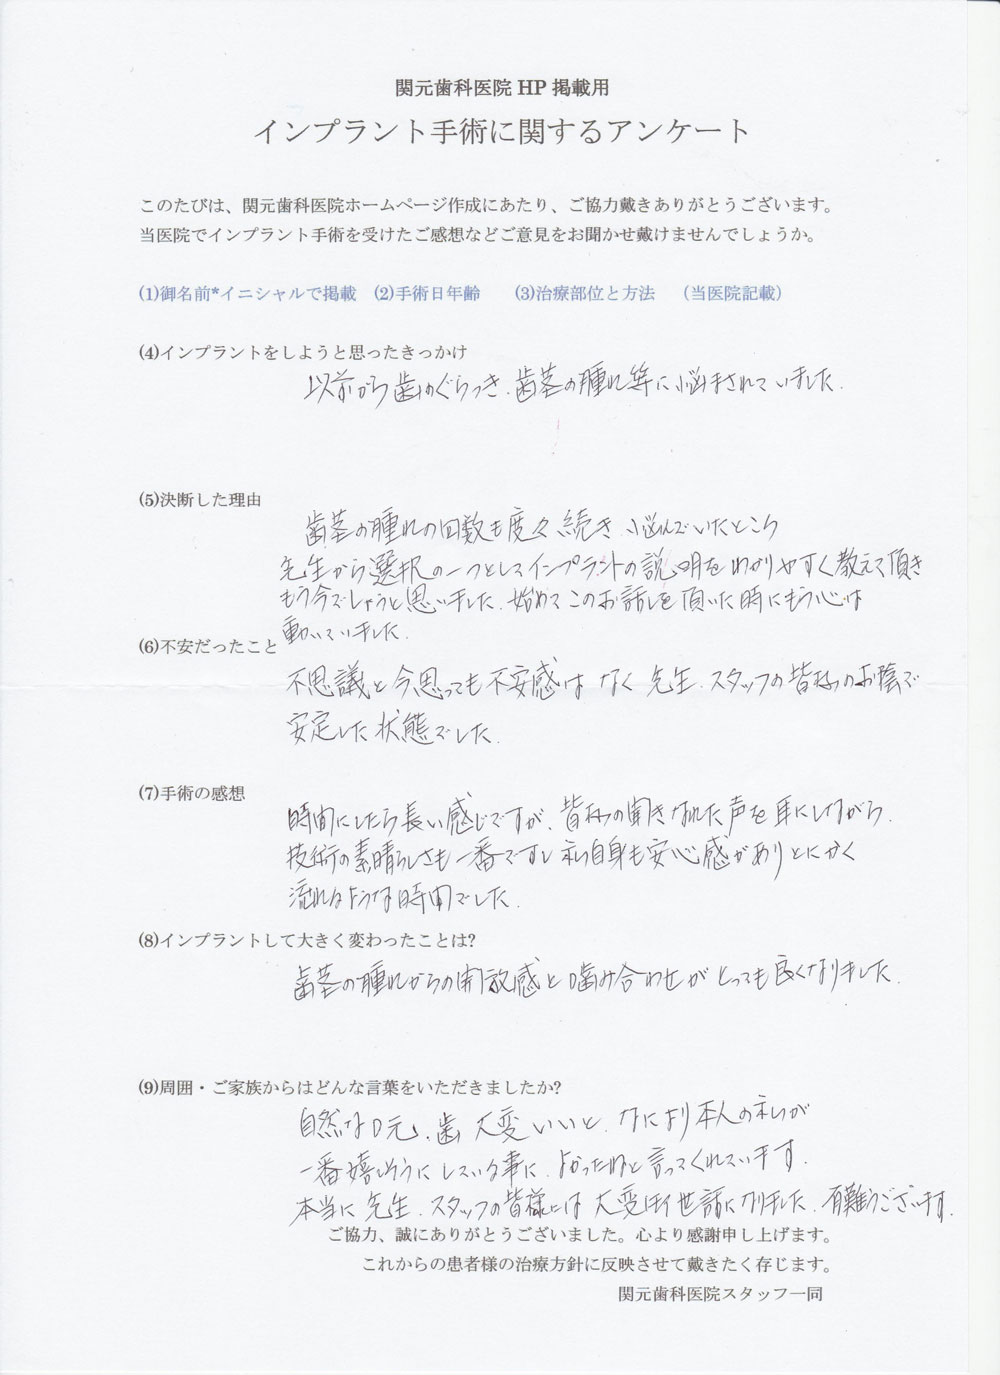 関元歯科医院 HP 掲載用
インプラント手術に関するアンケート
このたびは、関元歯科医院ホームページ作成にあたり、ご協力戴きありがとうございます。
当医院でインプラント手術を受けたご感想などご意見をお聞かせ戴けませんでしょうか。
(1)御名前*イニシャルで掲載 (2)手術日年齢 (3)治療部位と方法 （当医院記載）
(4)インプラントをしようと思ったきっかけ
以前から歯のぐらつき、歯茎の腫れ等に悩まされていました.
(5)決断した理由
歯茎の腫れの回数も度々続き、悩んでいたところ
先生から選択の一つとしてインプラントの説明をわかりやすく教えて頂き
もう今でしょうと思いました。始めてこのお話しを頂いた時にもう心は
動いていました.
(6)不安だったこと
不思議と今思っても不安感はなく先生、スタッフの皆様のお陰で
安定した状態でした.
(7)手術の感想
時間にしたら長い感じですが、皆様の聞きなれた声を耳にしながら、
技術の素晴らしさも一番ですし私自身も安心感がありとにかく
流れるような時間でした.
(8)インプラントして大きく変わったことは?
歯茎の腫れからの開放感と噛み合わせがとっても良くなりました.
(9)周囲・ご家族からはどんな言葉をいただきましたか?
自然な口元、歯 大変いいと、なにより本人の私が
一番嬉しそうにしている事に、よかったねと言ってくれています.
本当に先生、スタッフの皆様には大変お世話になりました、有難うございます.
ご協力、誠にありがとうございました。心より感謝申し上げます。
これからの患者様の治療方針に反映させて戴きたく存じます。
関元歯科医院スタッフ一同